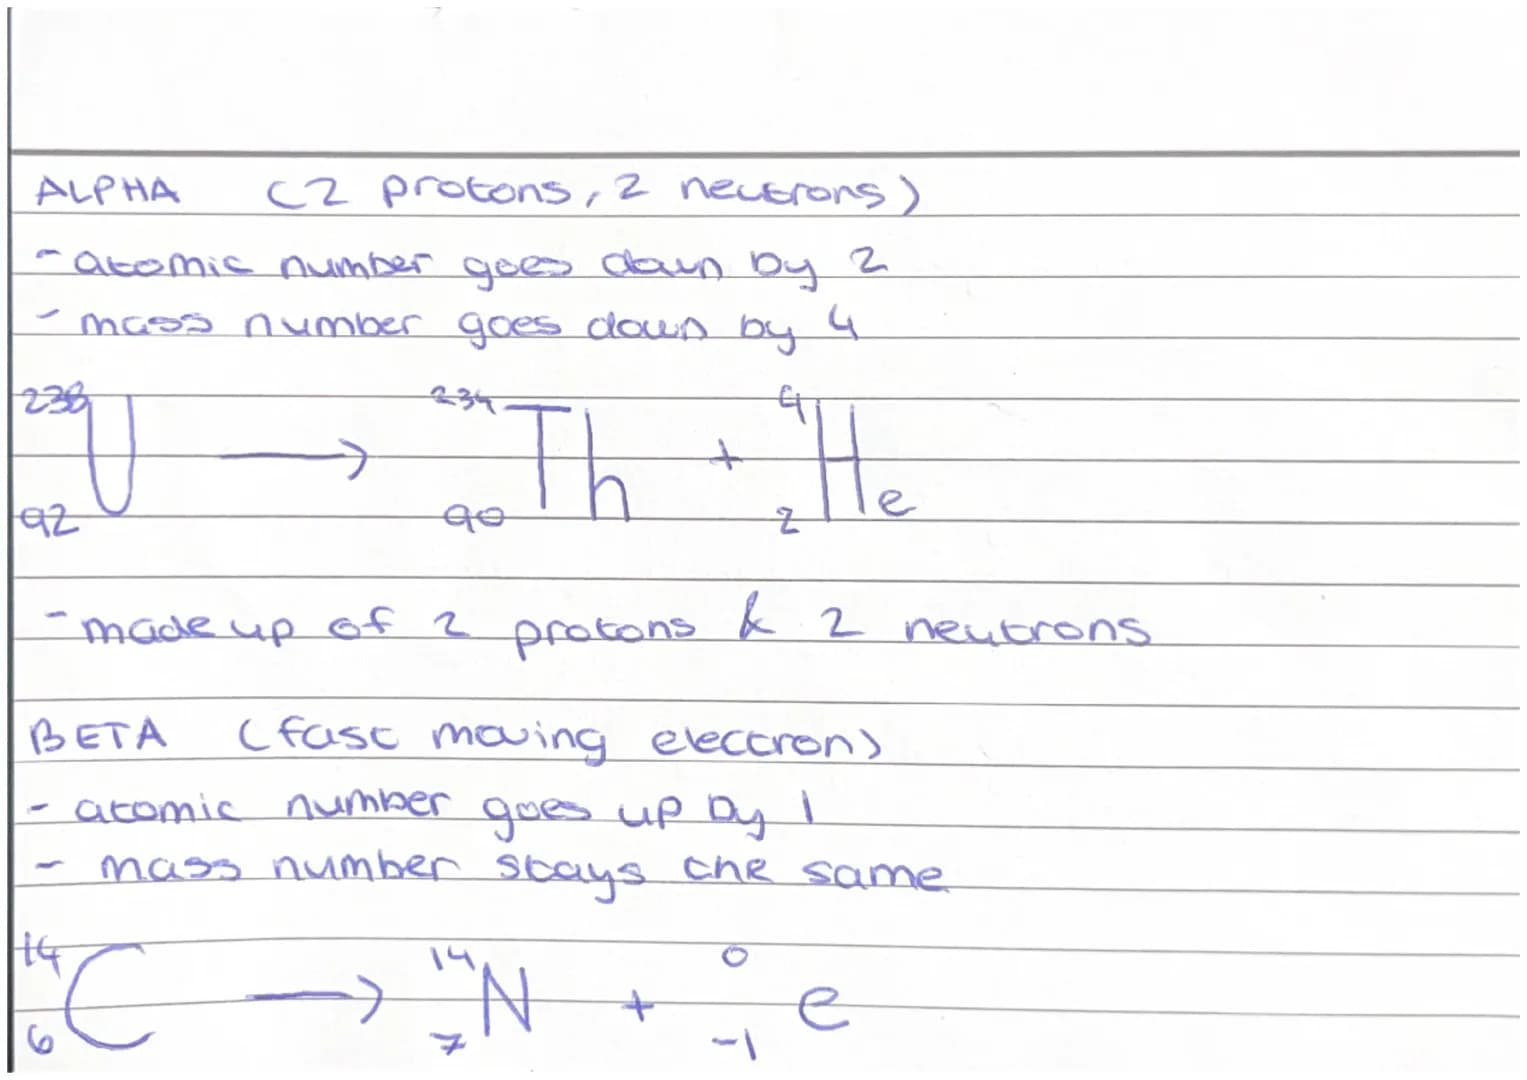 ALPHA (2 protons, 2 neutrons)
- atomic number goes down by 2
- mass number goes down by 4
²³⁸₉₂U → ²³⁴₉₀Th + ⁴₂He
- made up of 2 protons & 2 neutrons
BETA (fast moving electron)
- atomic number goes up by 1
- mass number stays the same
¹⁴₆C → ¹⁴₇N + ⁰₋₁e